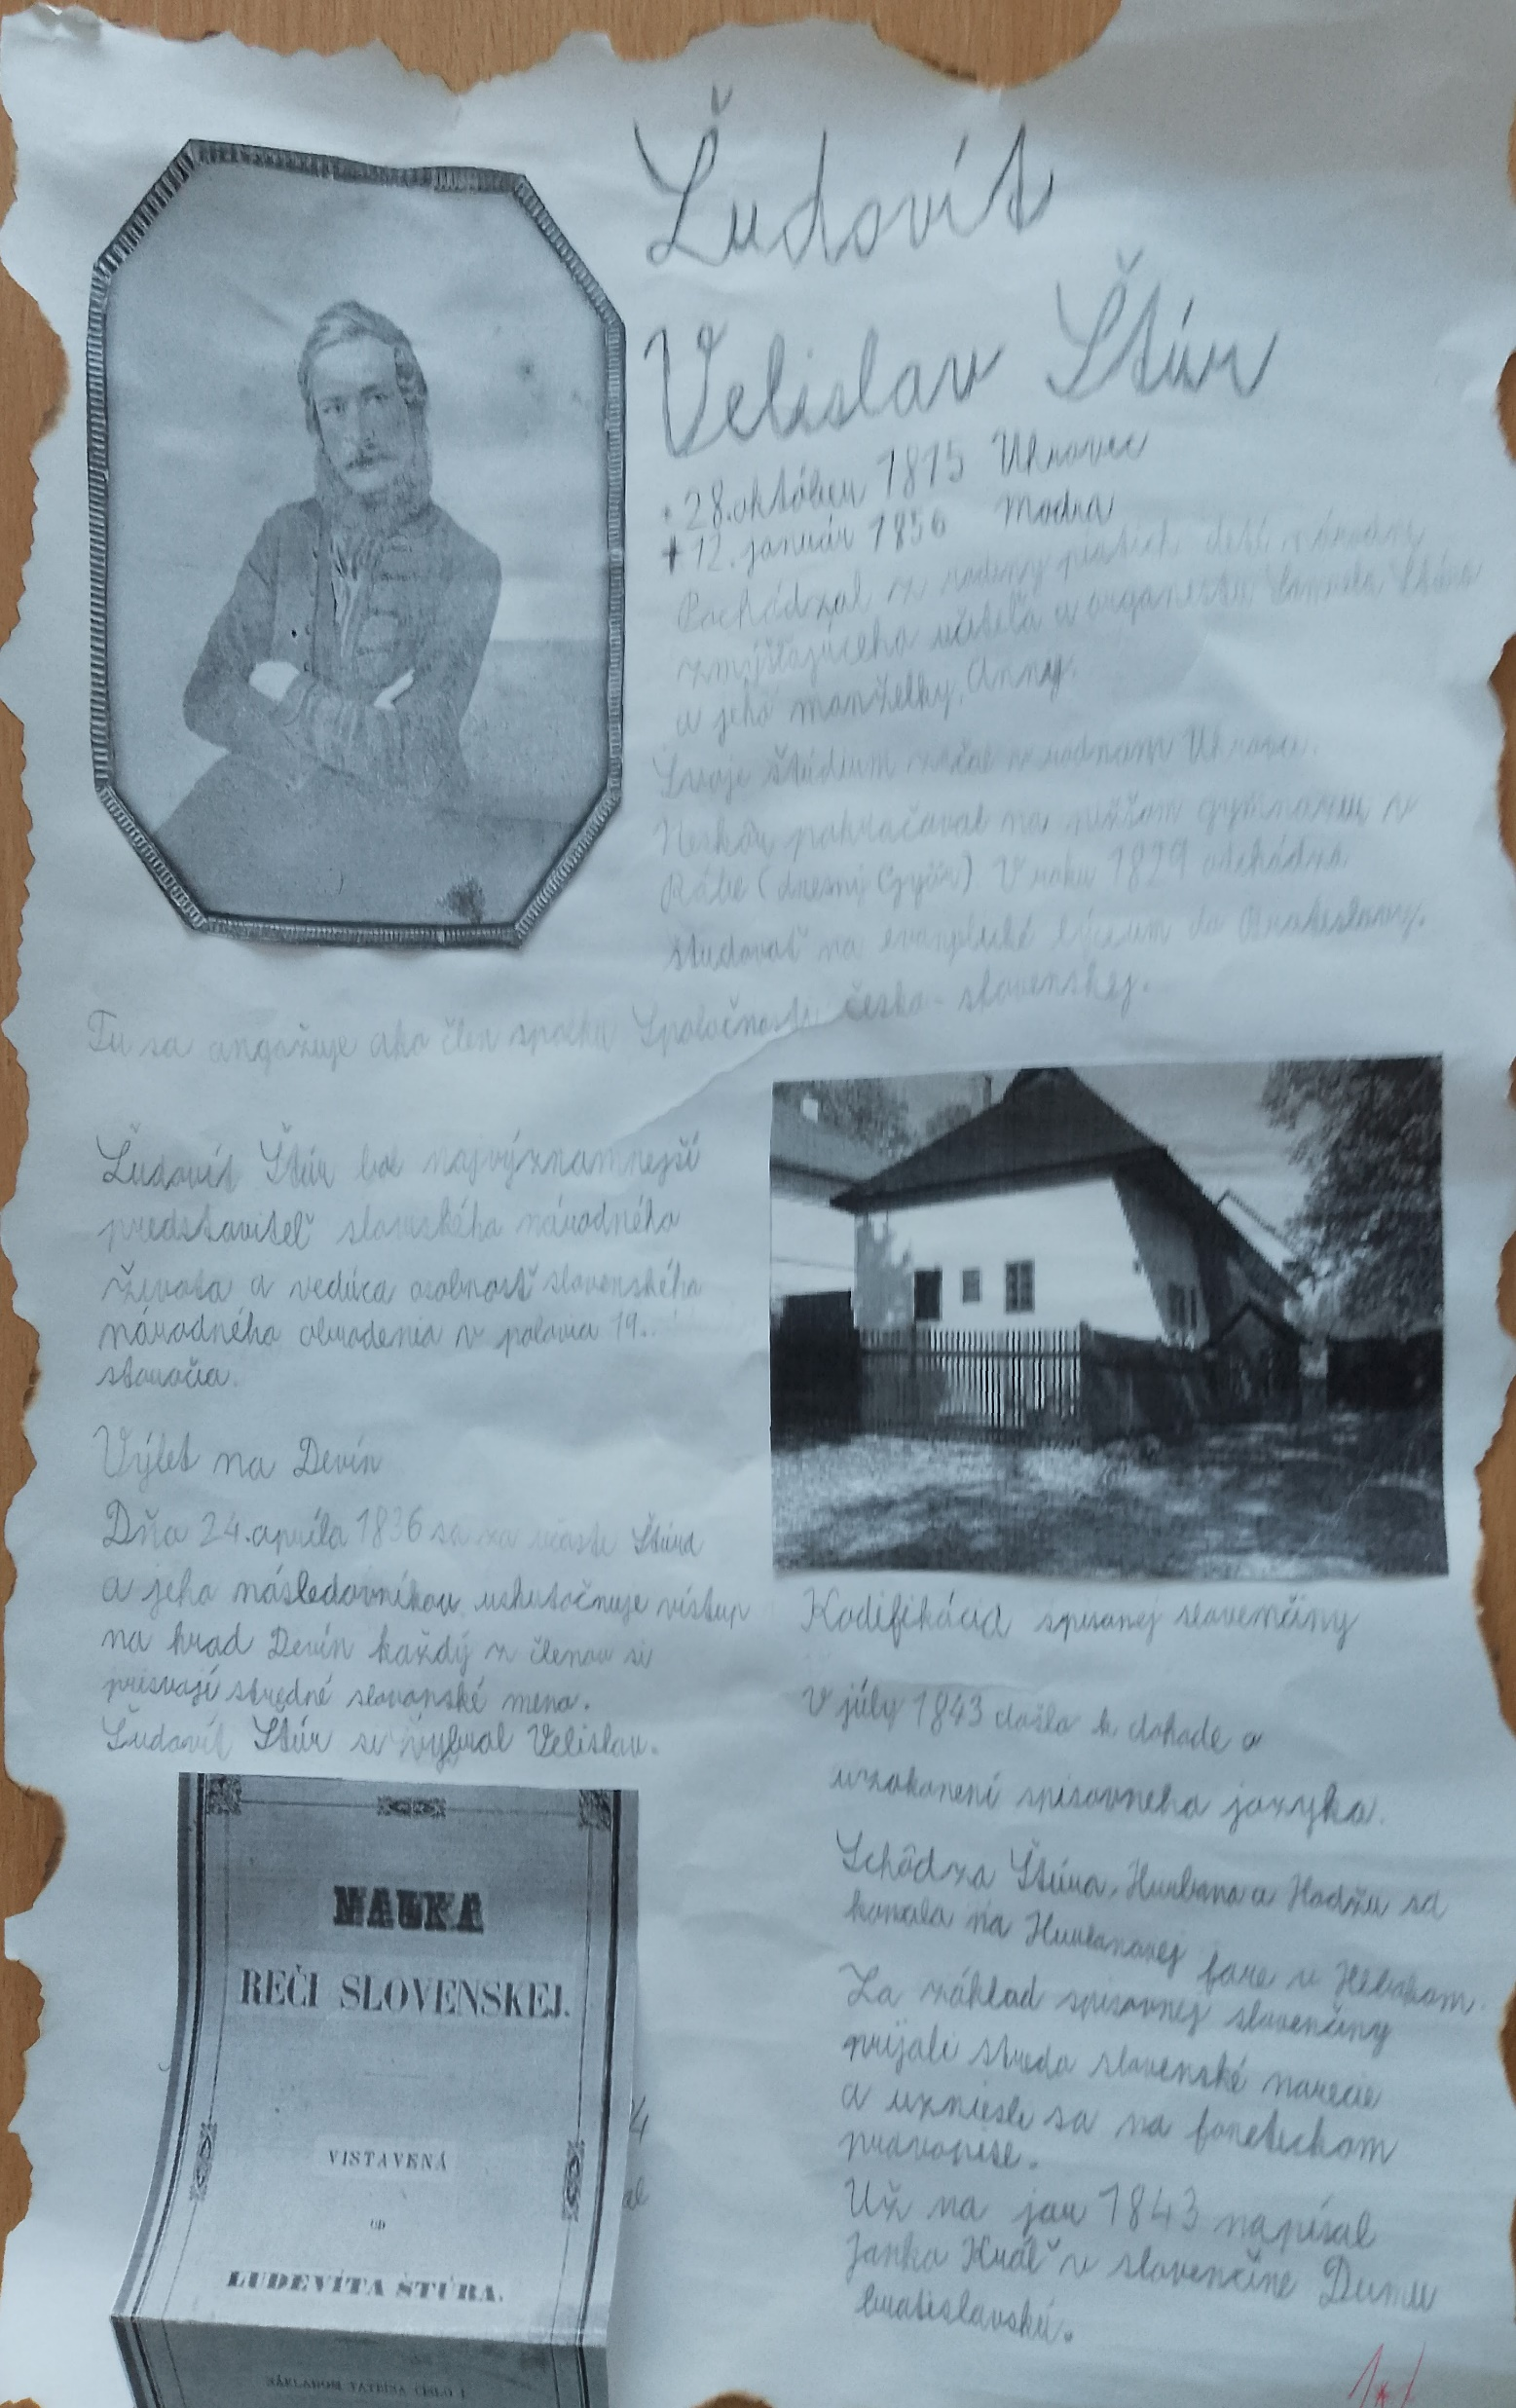 Ľudovít
Velislav Štúr
* 28. október 1815 Uhrovec
✝ 12. január 1856 Modra
Pochádzal z rodiny piatich detí národne
zmýšľajúceho učiteľa a organistu Samuela Štúra
a jeho manželky Anny.
Svoje štúdium začal v rodnom Uhrovci.
Neskôr pokračoval na nižšom gymnáziu v
Rábe (dnešný Győr) V roku 1829 odchádza
študovať na evanjelické lýceum do Bratislavy.
Tu sa angažuje ako člen spolku Spoločnosti česko-slovenskej.
Ľudovít Štúr bol najvýznamnejší
predstaviteľ slovenského národného
života a vedúca osobnosť slovenského
národného obrodenia v polovici 19.
storočia.
Výlet na Devín
Dňa 24. apríla 1836 sa za účasti Štúra
a jeho následovníkov uskutočnuje vístup
na hrad Devín každý z členov si
prisvojí stredné slovanské meno.
Ľudovít Štúr si vybral Velislav.
NAUKA
REČI SLOVENSKEJ.
VISTAVENÁ
OD
LUDEVÍTA ŠTÚRA.
NÁKLADOM TATRÍNA ČISLO 1
Kodifikácia spisovnej slovenčiny
V júly 1843 došlo k dohode o
uzákonení spisovneho jazyka.
Schôdza Štúra, Hurbana a Hodžu sa
konala na Hurbanovej fare v Hlbokom.
Za základ spisovnej slovenčiny
prijali stredo slovenské narecie
a uzniesli sa na fonetickom
pravopise.
Už na jar 1843 napísal
Janko Kráľ v slovenčine Dumu
bratislavskú.